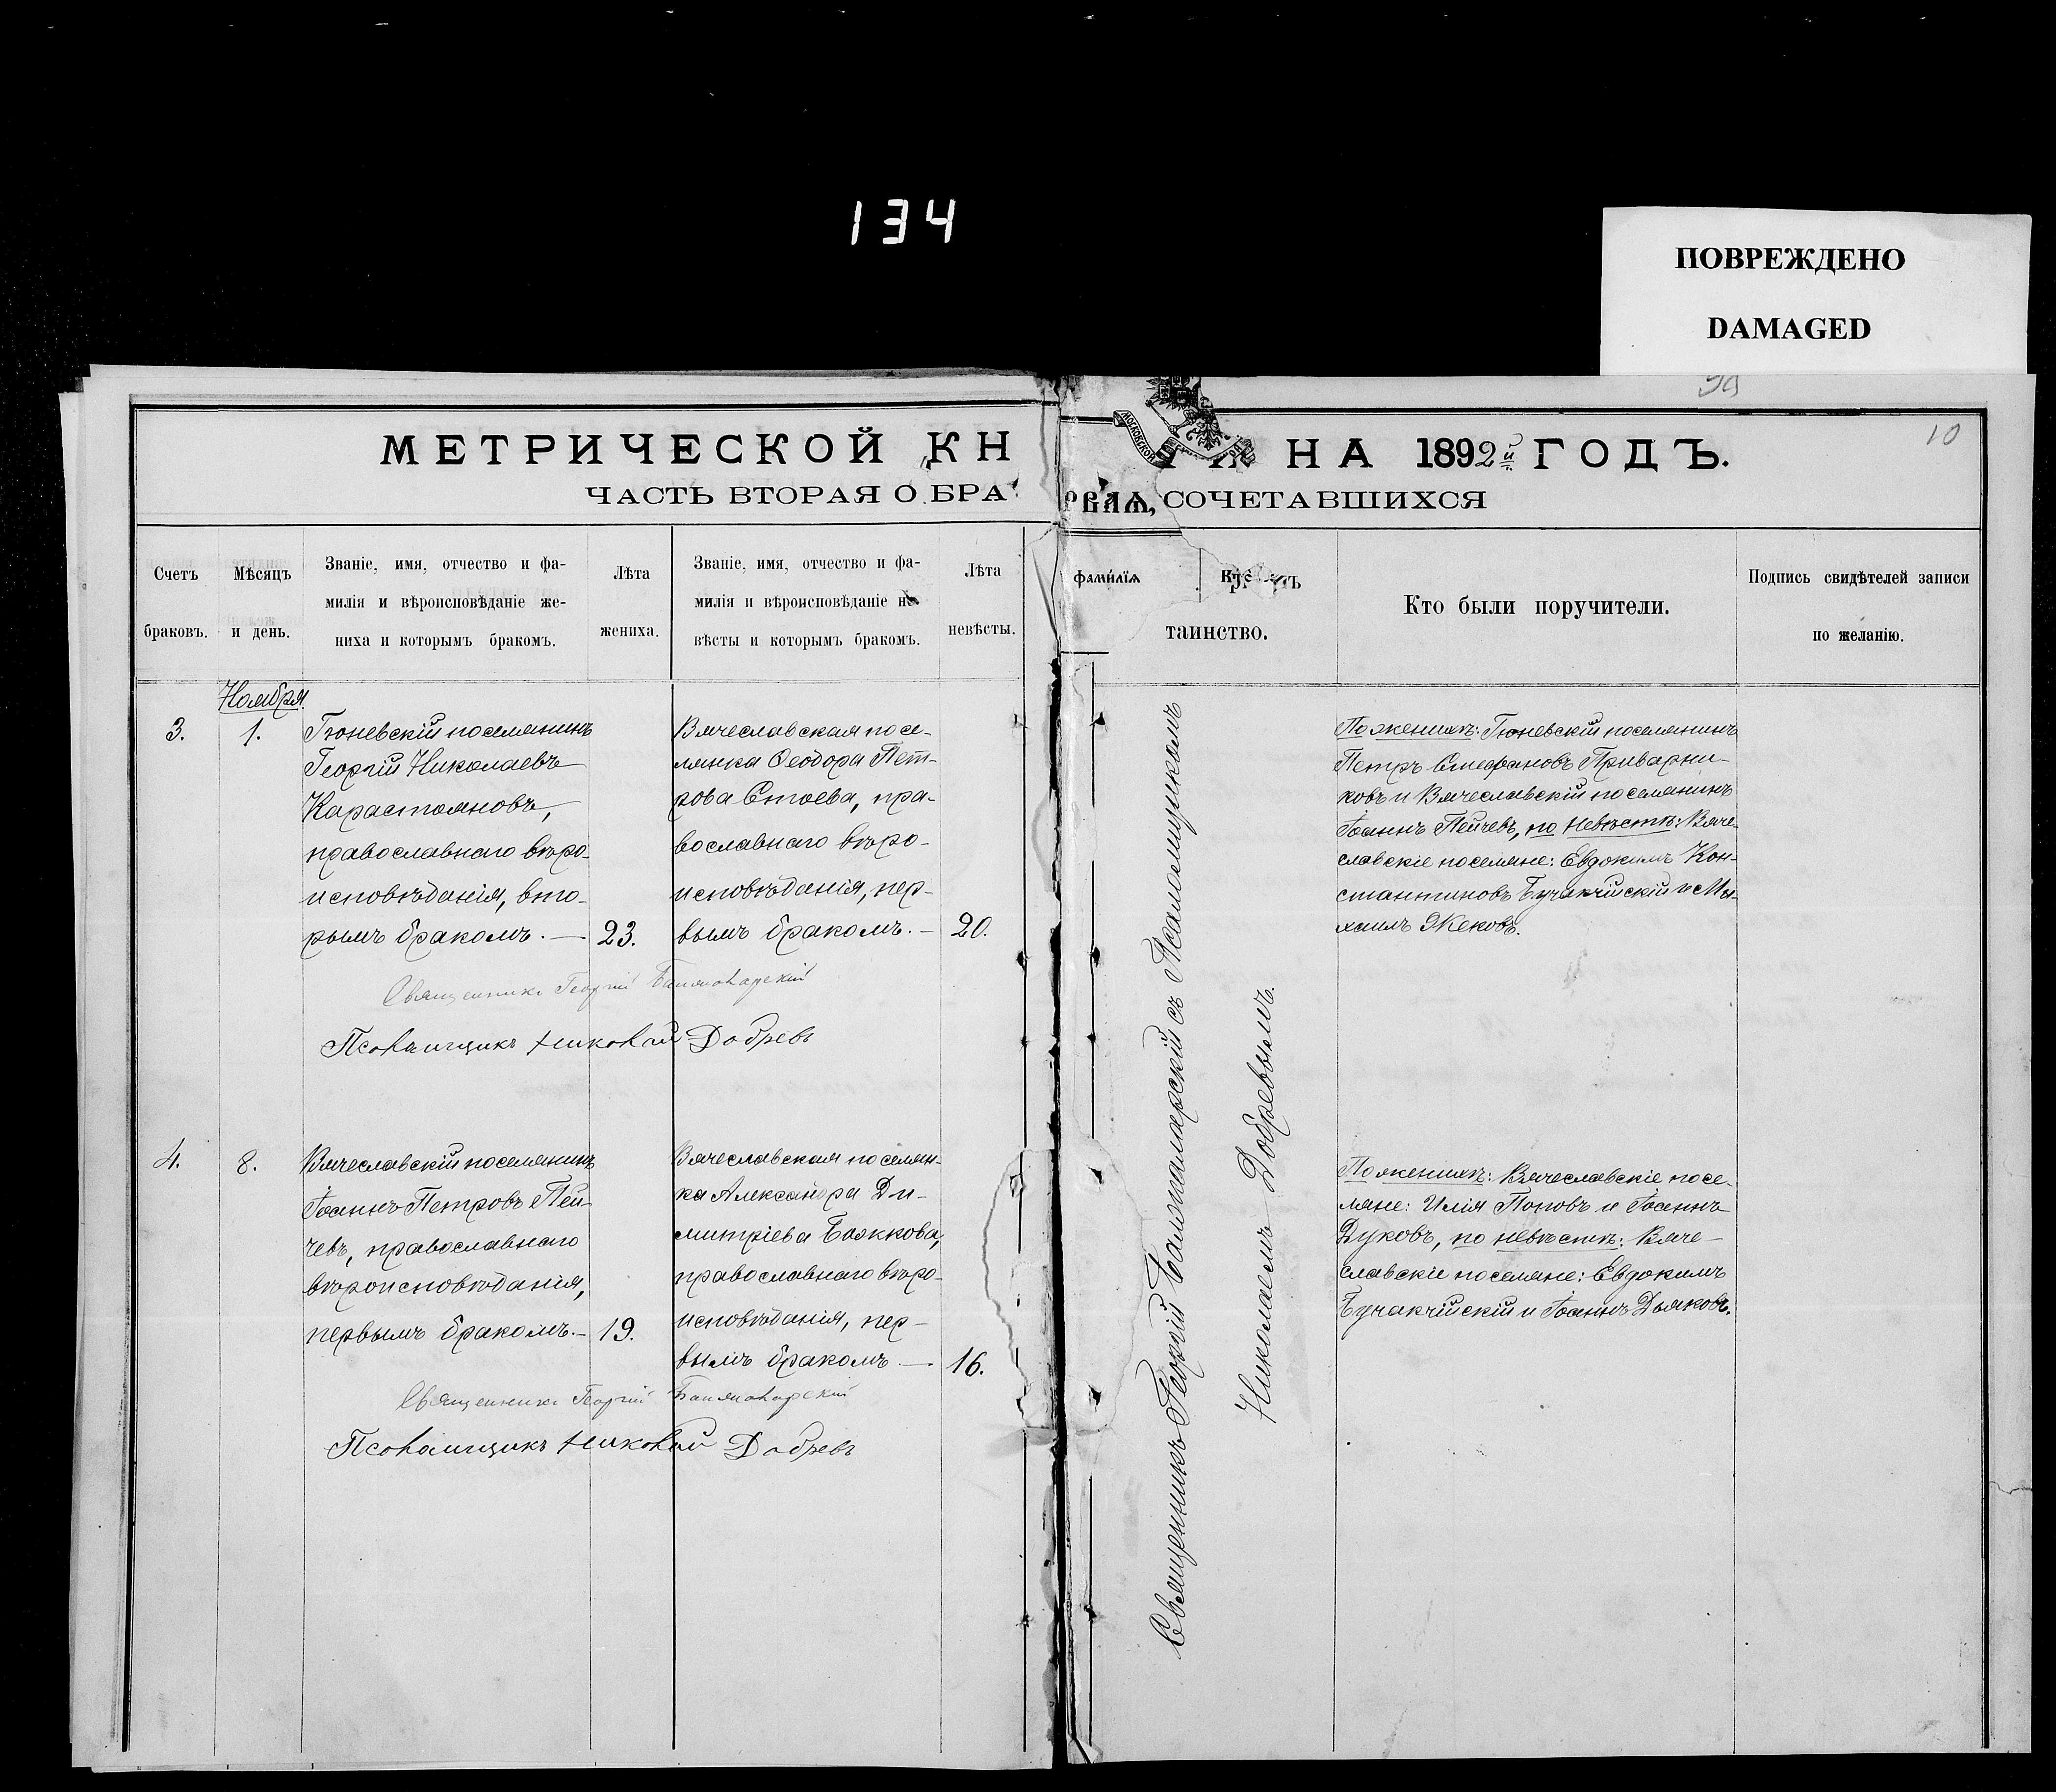 134
ПОВРЕЖДЕНО
DAMAGED
10
МЕТРИЧЕСКОЙ КН НА 1892й ГОДЪ.
ЧАСТЬ ВТОРАЯ О БРА СОЧЕТАВШИХСЯ
Счетъ
браковъ.
Мѣсяцъ
и день.
Званіе, имя, отчество и фа-
милія и вѣроисповѣданіе же-
ниха и которымъ бракомъ.
Лѣта
жениха.
Званіе, имя, отчество и фа-
милія и вѣроисповѣданіе не-
вѣсты и которымъ бракомъ.
Лѣта
невѣсты.
фамилїѧ
таинство.
Кто были поручители.
Подпись свидѣтелей записи
по желанію.
Ноября
3.
1.
Гюневскій поселянинъ
Георгій Николаевъ
Карастояновъ,
православнаго вѣро-
исповѣданія, вто-
рымъ бракомъ. —
23.
Вячеславская посе-
лянка Ѳеодора Пет-
рова Стоева, пра-
вославнаго вѣро-
исповѣданія, пер-
вымъ бракомъ. —
20.
Священникъ Георгій Баималарскій
Псаломщикъ Николай Добревъ
По женихѣ: Гюневскій поселянинъ
Петръ Стефановъ Приварни-
ковъ и Вячеславскій поселянинъ
Іоаннъ Пейчевъ, по невѣстѣ: Вяче-
славскіе поселяне: Евдокимъ Кон-
стантиновъ Бучакчійскій и Ми-
хаилъ Жековъ.
4.
8.
Вячеславскій поселянинъ
Іоаннъ Петровъ Пей-
чевъ, православнаго
вѣроисповѣданія,
первымъ бракомъ. —
19.
Вячеславская поселян-
ка Александра Ди-
митріева Божкова,
православнаго вѣро-
исповѣданія, пер-
вымъ бракомъ —.
16.
Священникъ Георгій Баималарскій
Псаломщикъ Николай Добревъ
Священникъ Георгій Баималарскій съ Псаломщикомъ
Николаемъ Добревымъ.
По женихѣ: Вячеславскіе посе-
ляне: Илія Поповъ и Іоаннъ
Дуковъ, по невѣстѣ: Вяче-
славскіе поселяне: Евдокимъ
Бучакчійскій и Іоаннъ Дьяковъ.